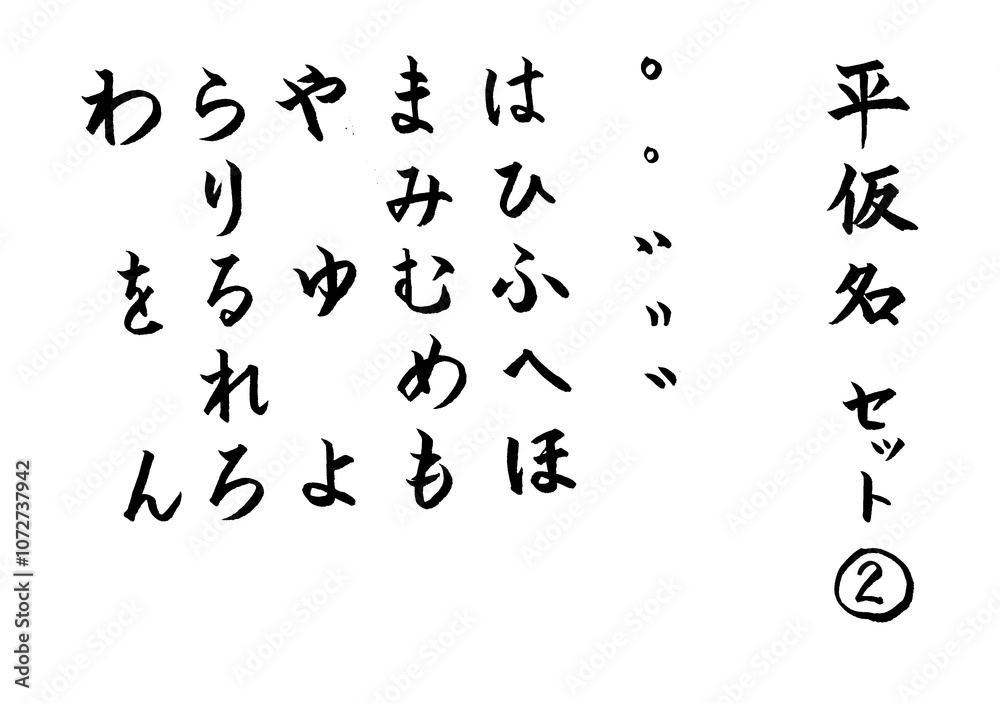 平仮名 セット②
゜゜゛゛゛
はひふへほ
まみむめも
や ゆ よ
らりるれろ
わ を ん
Adobe Stock | #1072737942